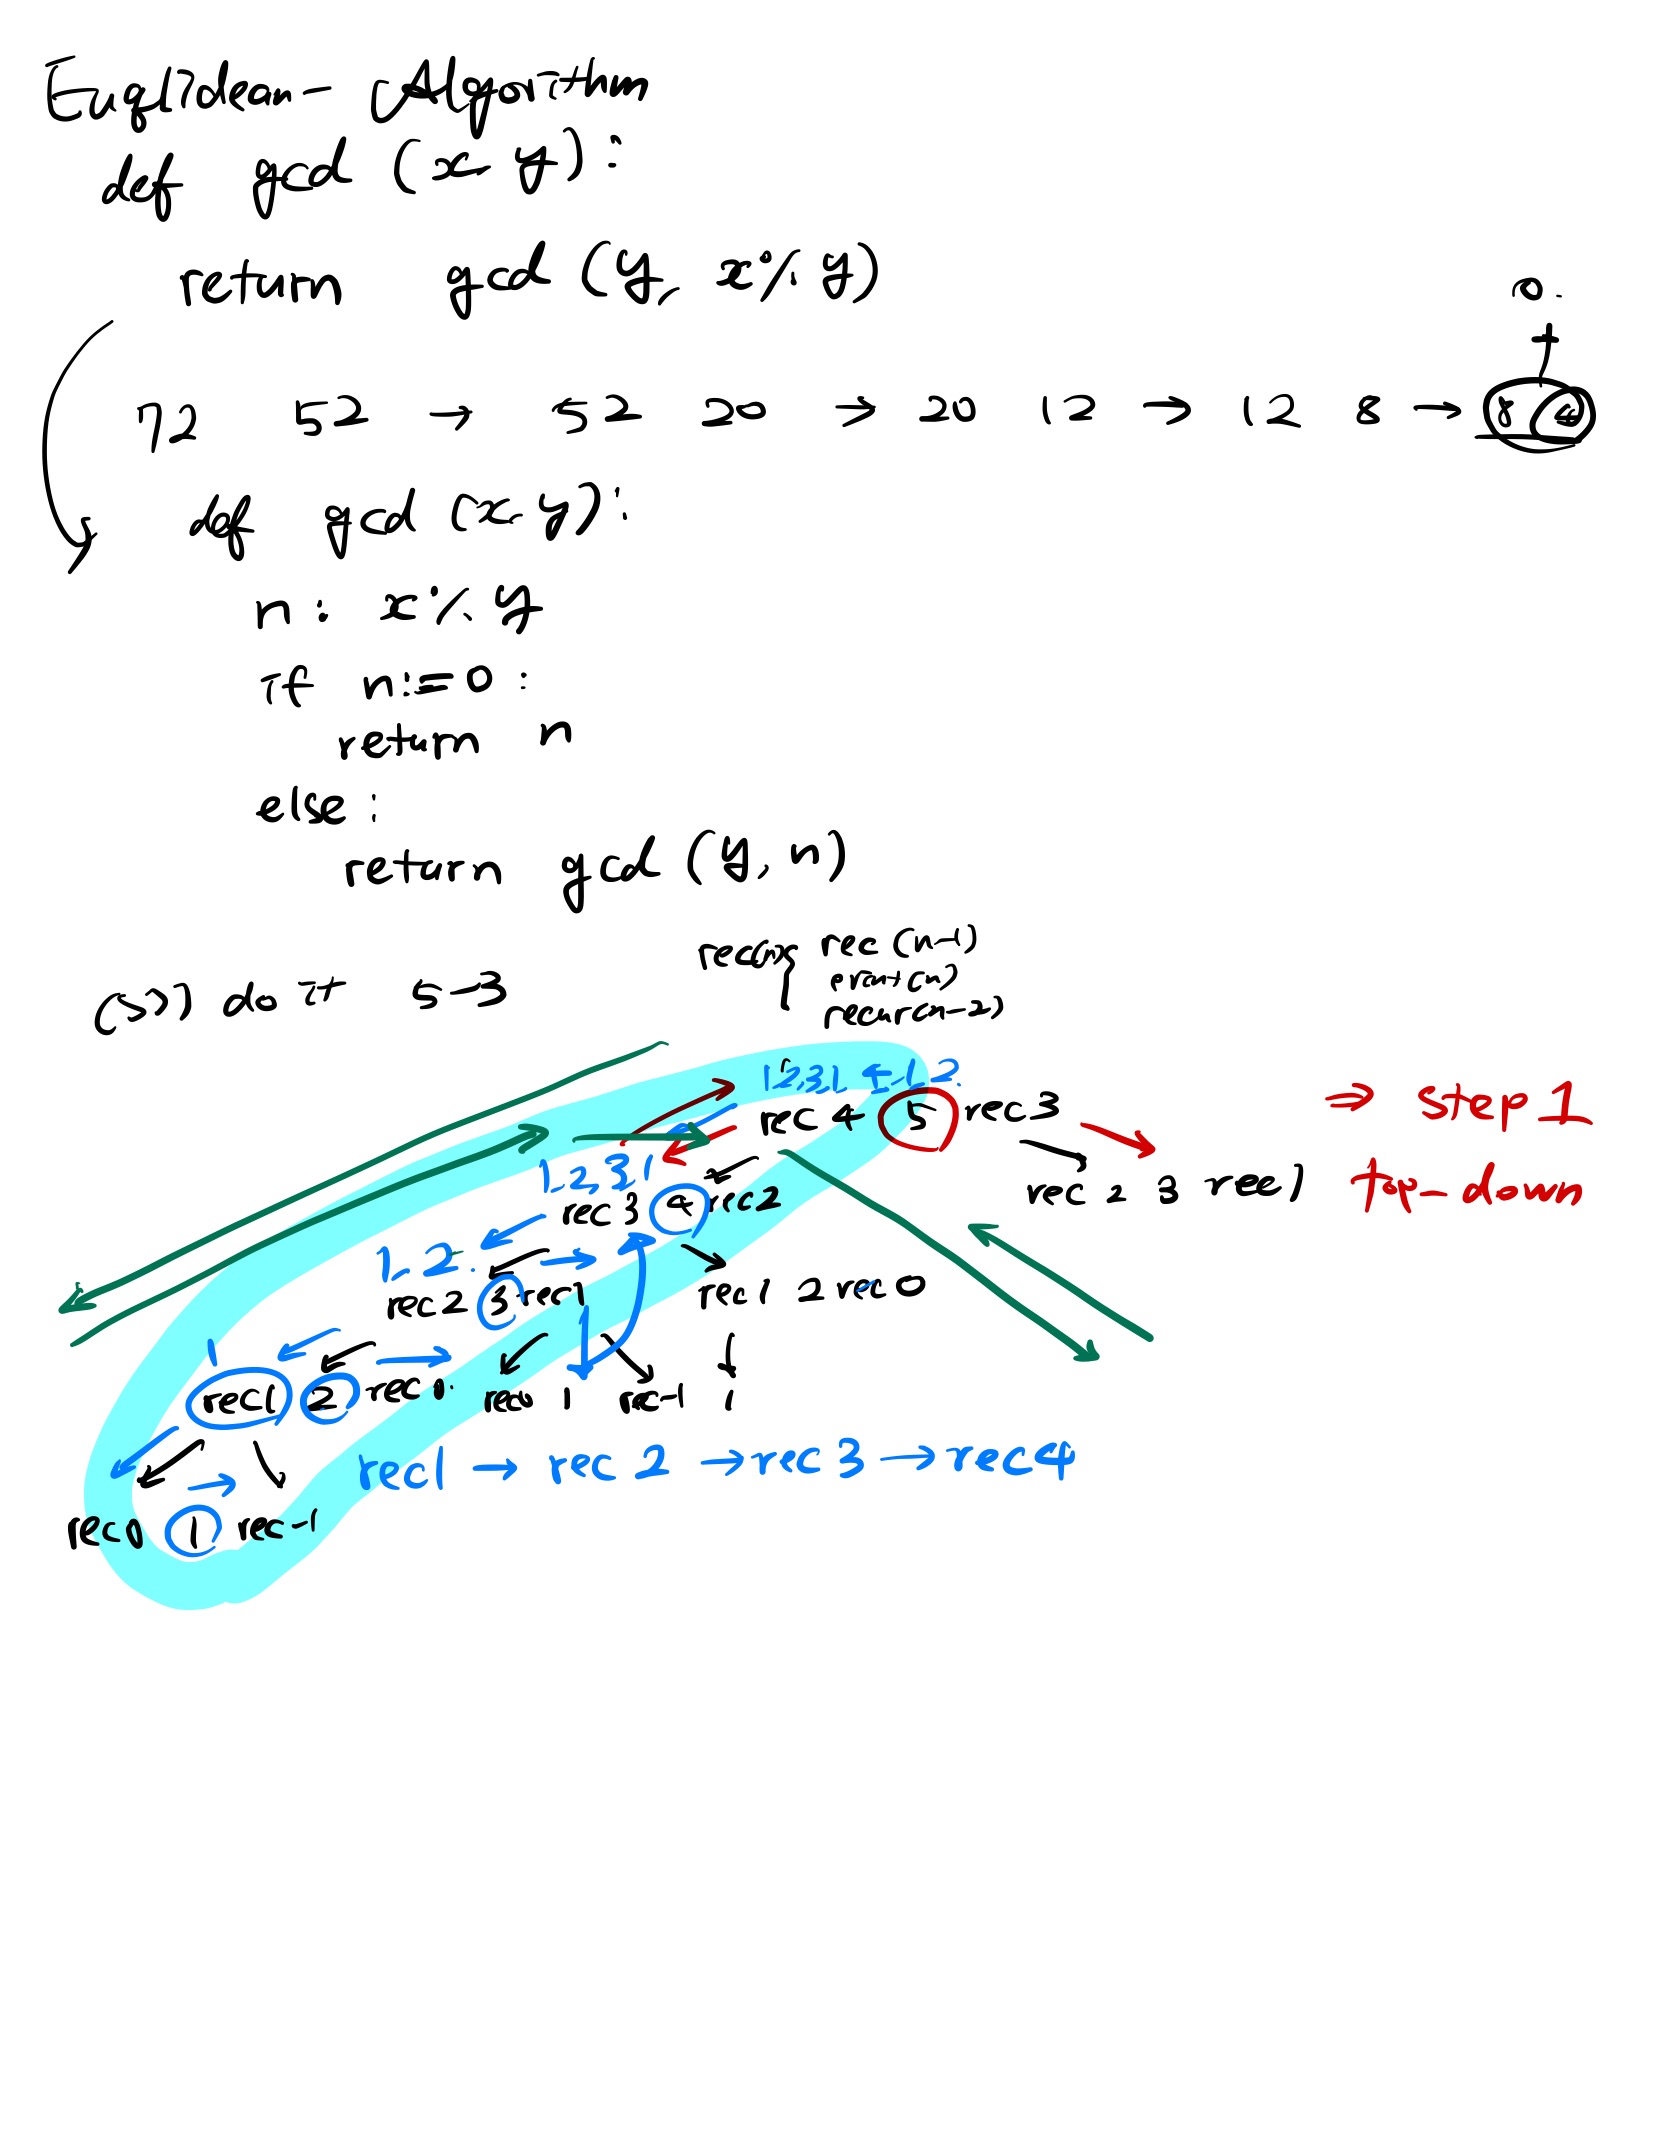 Euqlidean- Algorithm
def gcd (x, y):
return gcd (y, x%y)
0.
72 52 → 52 20 → 20 12 → 12 8 → 8 4
def gcd (x, y):
n: x%y
if n!=0:
return n
else:
return gcd (y, n)
rec(n){ rec (n-1)
print(n)
recur(n-2)
do it 5-3
1,2,3,1, 4,1,2.
rec 4 5 rec3
⇒ step 1
1,2,3,1
rec 3 4 rec2
rec 2 3 rec1
top-down
1,2.
rec 2 3 rec1
rec1 2 rec0
1
rec1 2 rec0.
rec0 1 rec-1 1
rec1 → rec 2 → rec 3 → rec4
rec0 1 rec-1